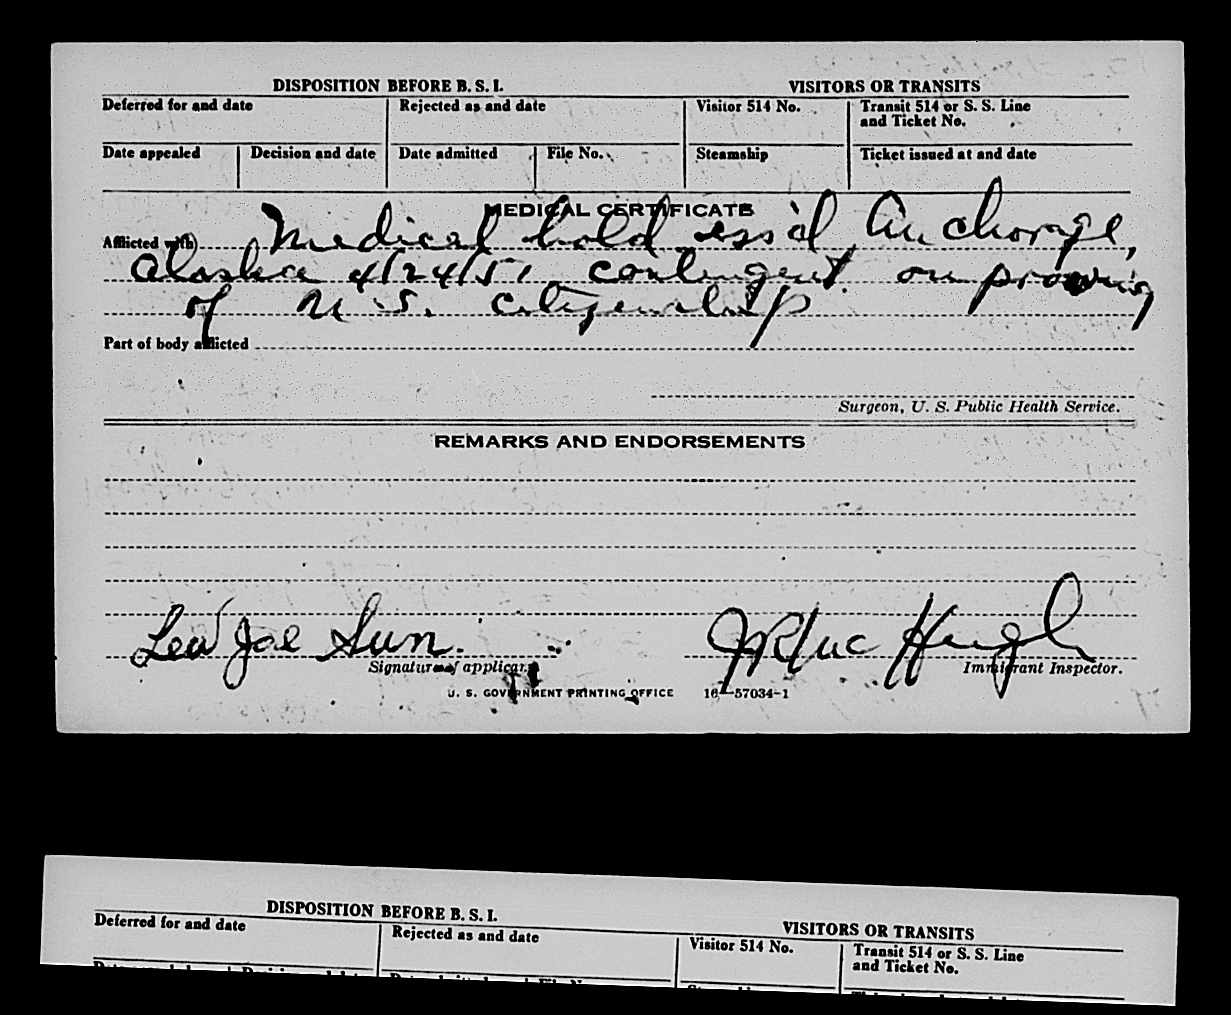 DISPOSITION BEFORE B. S. I. VISITORS OR TRANSITS
Deferred for and date Rejected as and date Visitor 514 No. Transit 514 or S. S. Line
and Ticket No.
Date appealed Decision and date Date admitted File No. Steamship Ticket issued at and date
MEDICAL CERTIFICATE
Afflicted with) Medical hold iss'd Anchorage,
Alaska 4/24/51 contingent on proving
of U.S. citizenship
Part of body afflicted
Surgeon, U. S. Public Health Service.
REMARKS AND ENDORSEMENTS
Lew Joe Sun
Signature of applicant Immigrant Inspector.
U. S. GOVERNMENT PRINTING OFFICE 16—57034-1
DISPOSITION BEFORE B. S. I. VISITORS OR TRANSITS
Deferred for and date Rejected as and date Visitor 514 No. Transit 514 or S. S. Line
and Ticket No.